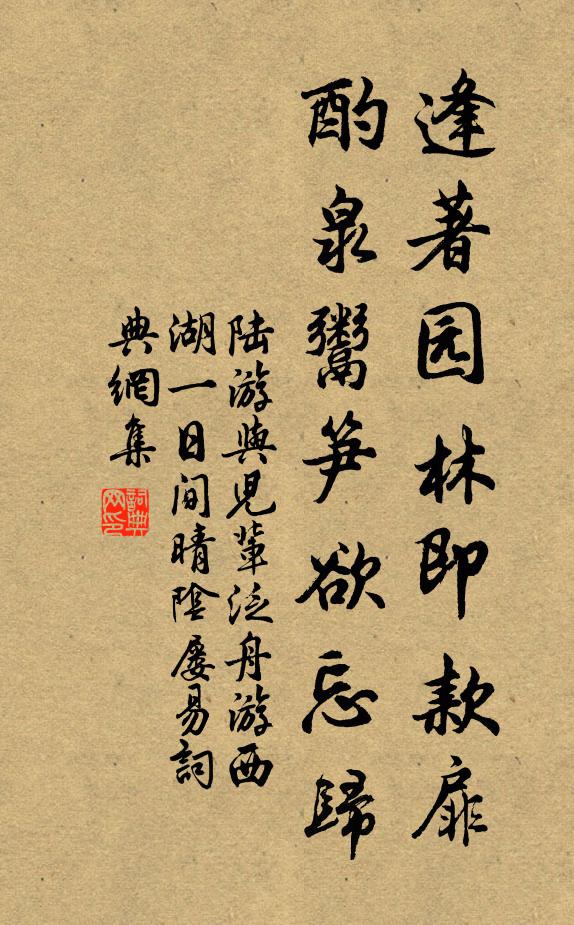 逢著园林即款扉
酌泉鬻笋欲忘歸
陆游與児輩泛舟游西
湖一日间晴陰屡易詞
典網集
詞典
网印